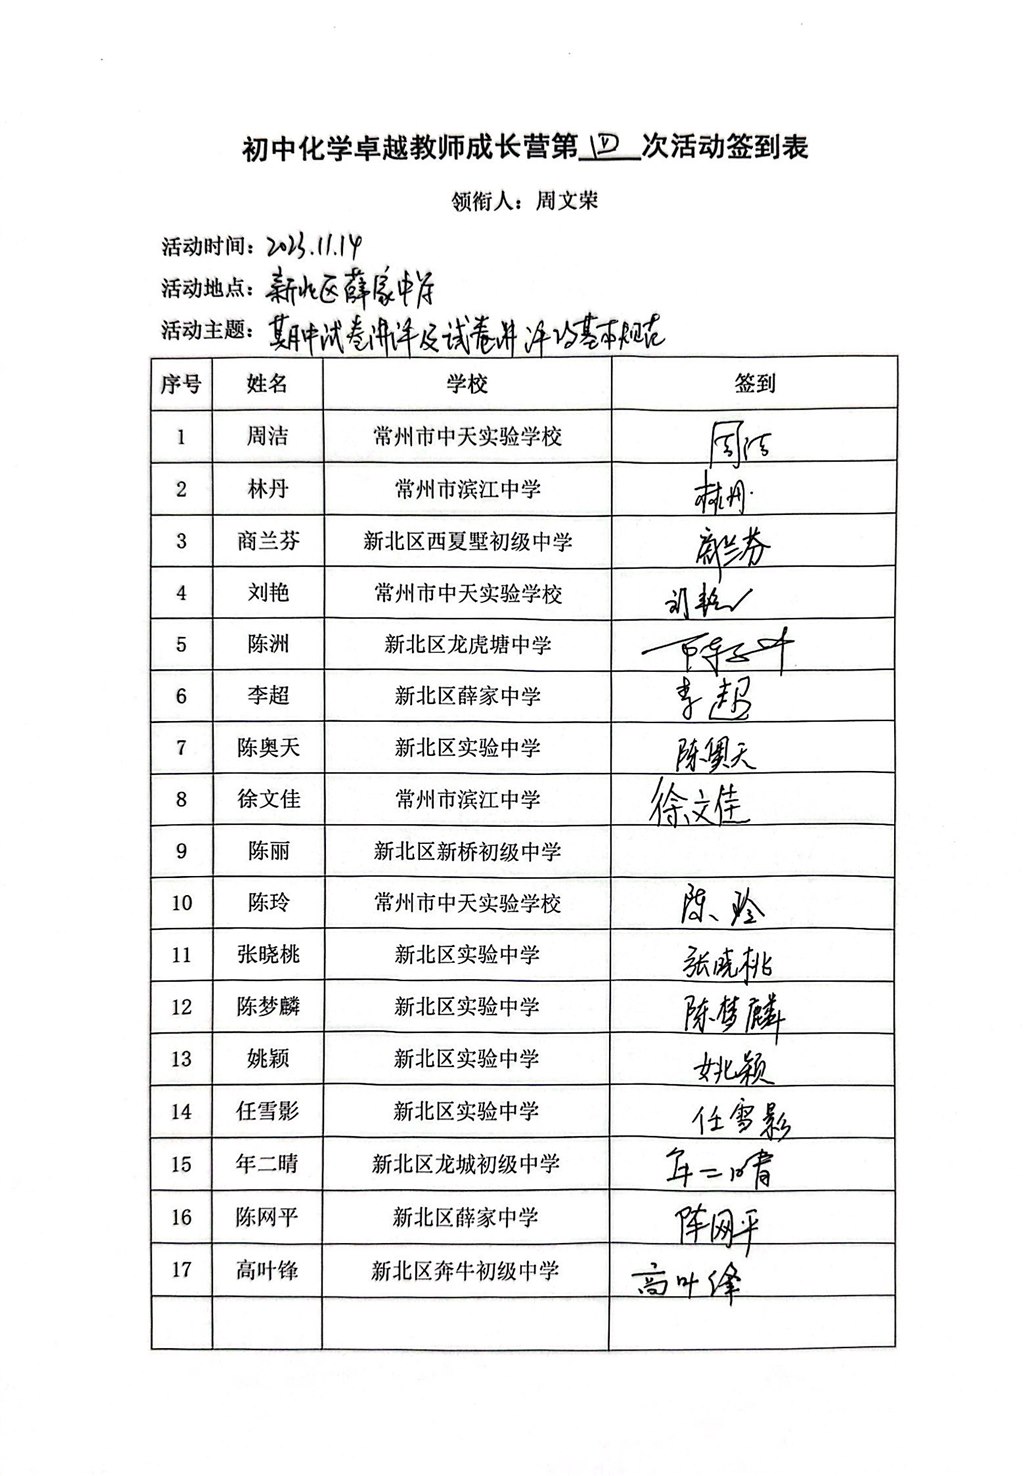 初中化学卓越教师成长营第四次活动签到表
领衔人：周文荣
活动时间：2023.11.14
活动地点：新北区薛家中学
活动主题：期中试卷讲评及试卷讲评的基本规范
序号 姓名 学校 签到
1 周洁 常州市中天实验学校 周洁
2 林丹 常州市滨江中学 林丹
3 商兰芬 新北区西夏墅初级中学 商兰芬
4 刘艳 常州市中天实验学校 刘艳
5 陈洲 新北区龙虎塘中学 陈洲
6 李超 新北区薛家中学 李超
7 陈奥天 新北区实验中学 陈奥天
8 徐文佳 常州市滨江中学 徐文佳
9 陈丽 新北区新桥初级中学
10 陈玲 常州市中天实验学校 陈玲
11 张晓桃 新北区实验中学 张晓桃
12 陈梦麟 新北区实验中学 陈梦麟
13 姚颖 新北区实验中学 姚颖
14 任雪影 新北区实验中学 任雪影
15 年二晴 新北区龙城初级中学 年二晴
16 陈网平 新北区薛家中学 陈网平
17 高叶锋 新北区奔牛初级中学 高叶锋